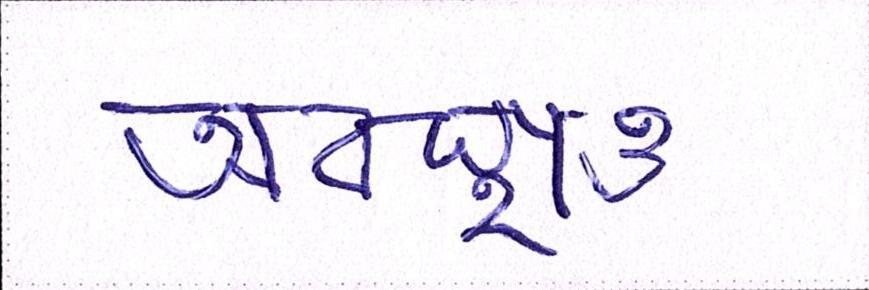 অবধূত